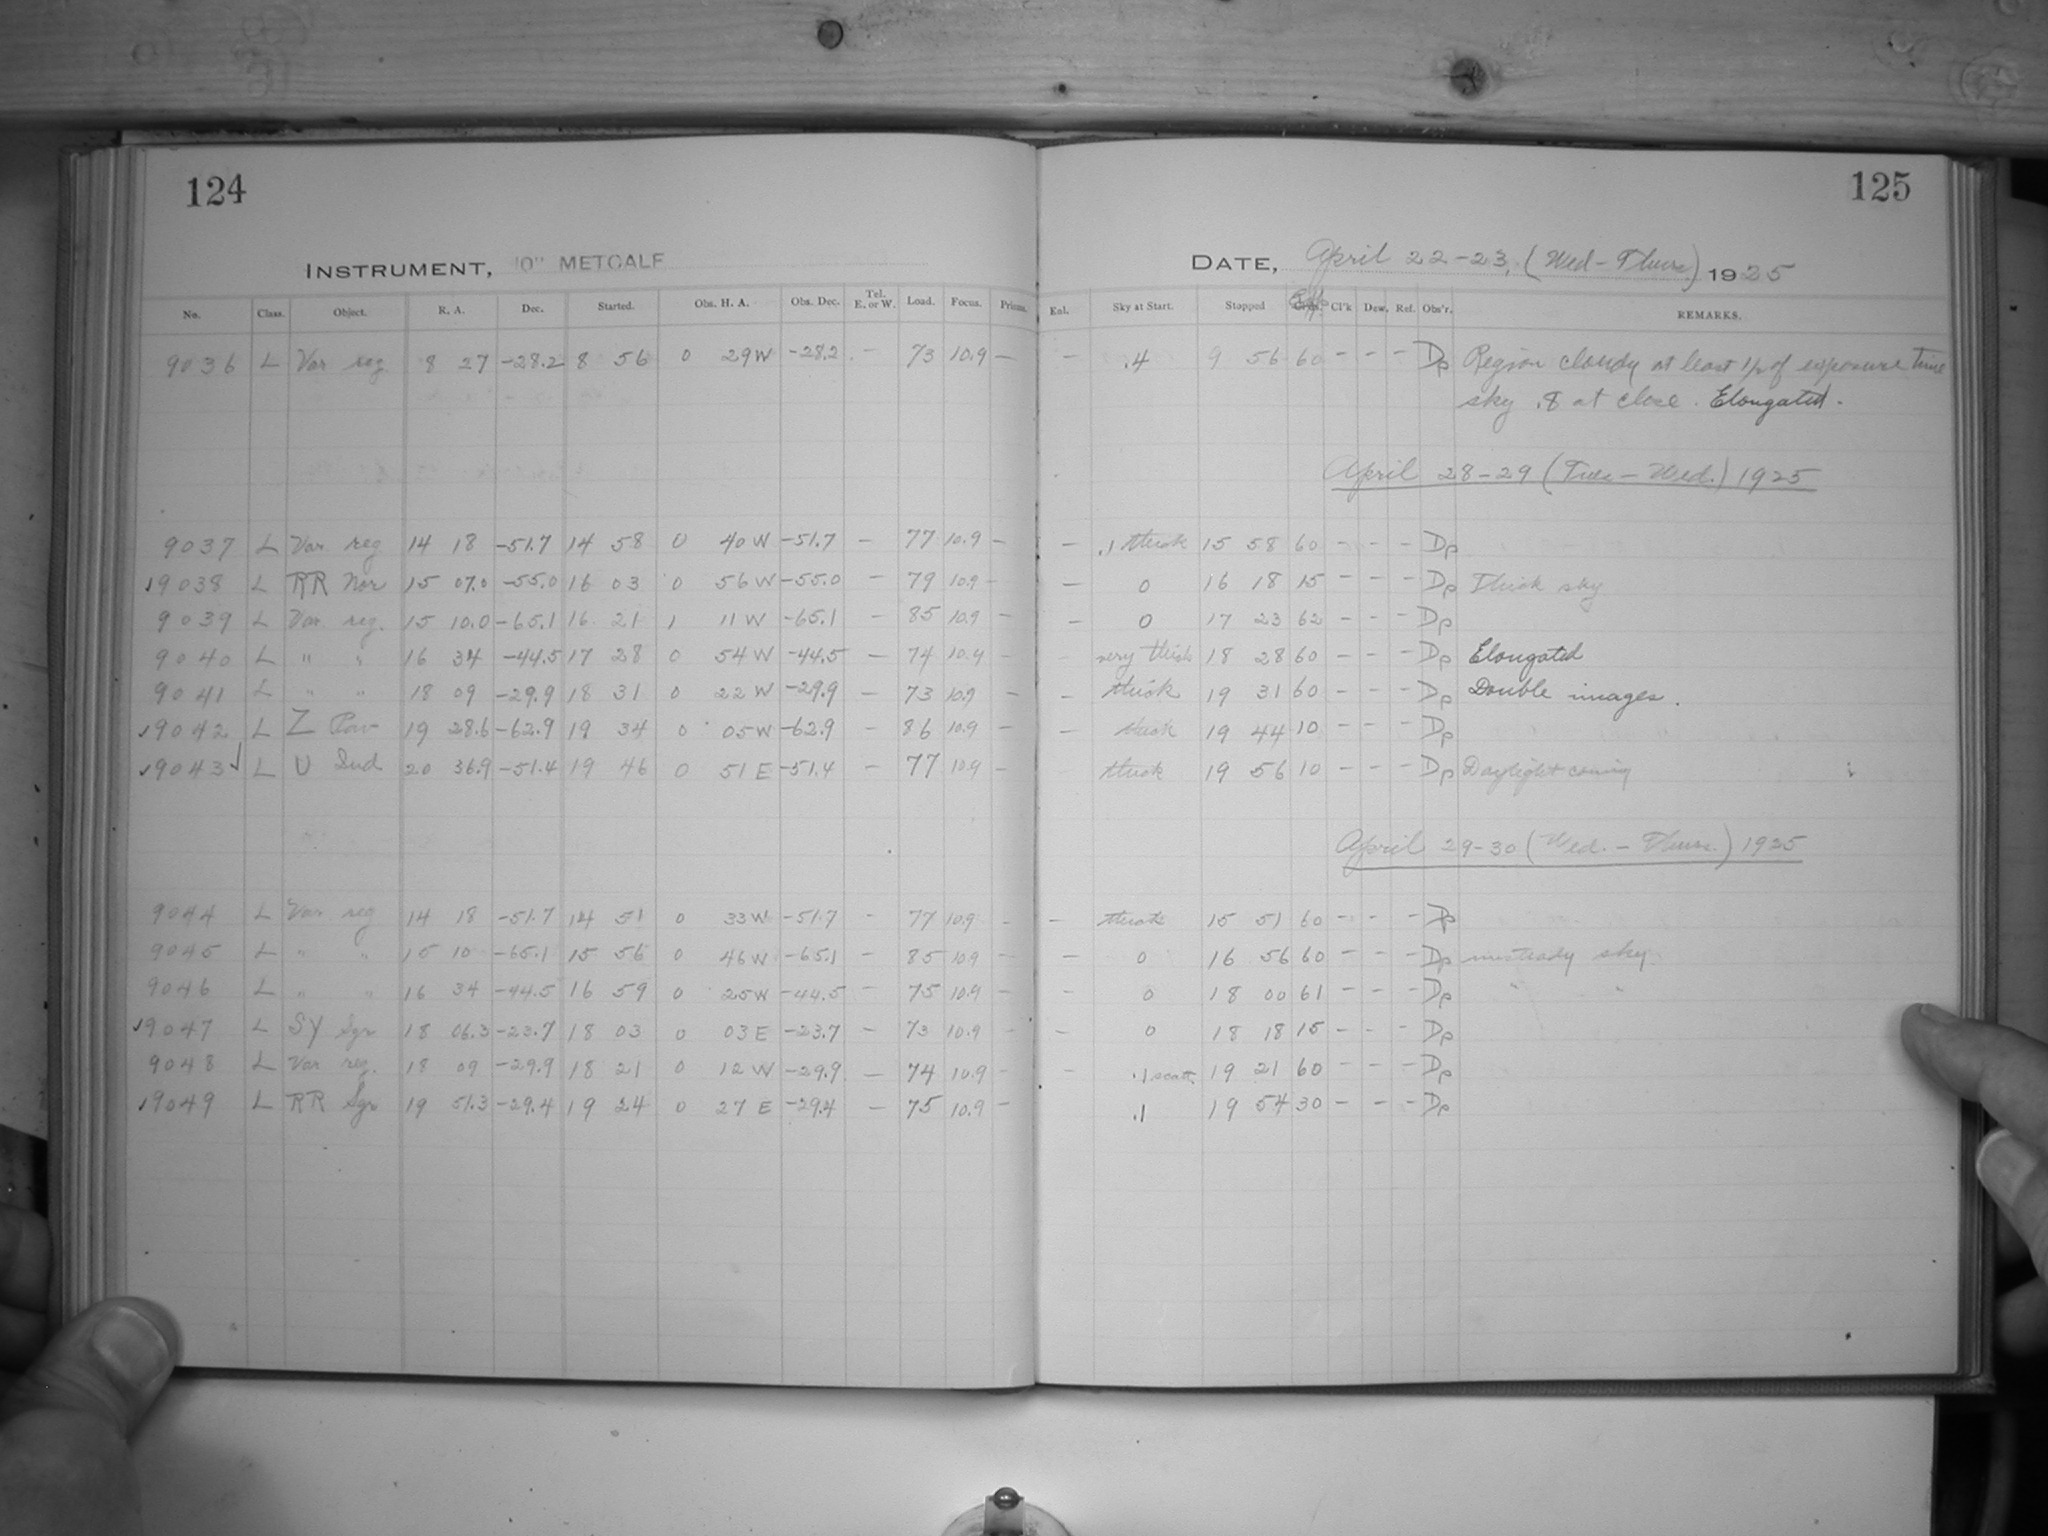 124
125
INSTRUMENT, 10" METCALF
DATE, April 22-23, (Wed-Thurs.) 1925
No. Class. Object. R. A. Dec. Started. Obs. H. A. Obs. Dec. Tel. E. or W. Load. Focus. Prisms. Enl. Sky at Start. Stopped Exp. Cl'k Dew. Ref. Obs'r. REMARKS.
9036 L Var reg 8 27 -28.2 8 56 0 29W -28.2 - 73 10.9 - - .4 9 56 60 - - - Dp Region cloudy at least 1/2 of exposure time
sky .8 at close. Elongated.
April 28-29 (Tues-Wed.) 1925
9037 L Var reg 14 18 -51.7 14 58 0 40W -51.7 - 77 10.9 - - .1 thick 15 58 60 - - - Dp
√9038 L RR Nor 15 07.0 -55.0 16 03 0 56W -55.0 - 79 10.9 - - 0 16 18 15 - - - Dp Thick sky
9039 L Var reg. 15 10.0 -65.1 16 21 1 11W -65.1 - 85 10.9 - - 0 17 23 62 - - - Dp
9040 L " " 16 34 -44.5 17 28 0 54W -44.5 - 74 10.9 - - very thick 18 28 60 - - - Dp Elongated
9041 L " " 18 09 -29.9 18 31 0 22W -29.9 - 73 10.9 - - thick 19 31 60 - - - Dp Double images.
√9042 L Z Pav 19 28.6 -62.9 19 34 0 05W -62.9 - 86 10.9 - - thick 19 44 10 - - - Dp
√9043√ L U Ind 20 36.9 -51.4 19 46 0 51E -51.4 - 77 10.9 - thick 19 56 10 - - - Dp Daylight coming
April 29-30 (Wed.-Thurs.) 1925
9044 L Var reg 14 18 -51.7 14 51 0 33W -51.7 - 77 10.9 - - thick 15 51 60 - - - Dp
9045 L " " 15 10 -65.1 15 56 0 46W -65.1 - 85 10.9 - - 0 16 56 60 - - - Dp unsteady sky.
9046 L " " 16 34 -44.5 16 59 0 25W -44.5 - 75 10.9 - - 0 18 00 61 - - - Dp " "
√9047 L SY Sgr 18 06.3 -23.7 18 03 0 03E -23.7 - 73 10.9 - - 0 18 18 15 - - - Dp
9048 L Var reg. 18 09 -29.9 18 21 0 12W -29.9 - 74 10.9 - - .1 scatt. 19 21 60 - - - Dp
√9049 L RR Sgr 19 51.3 -29.4 19 24 0 27E -29.4 - 75 10.9 - .1 19 54 30 - - - Dp